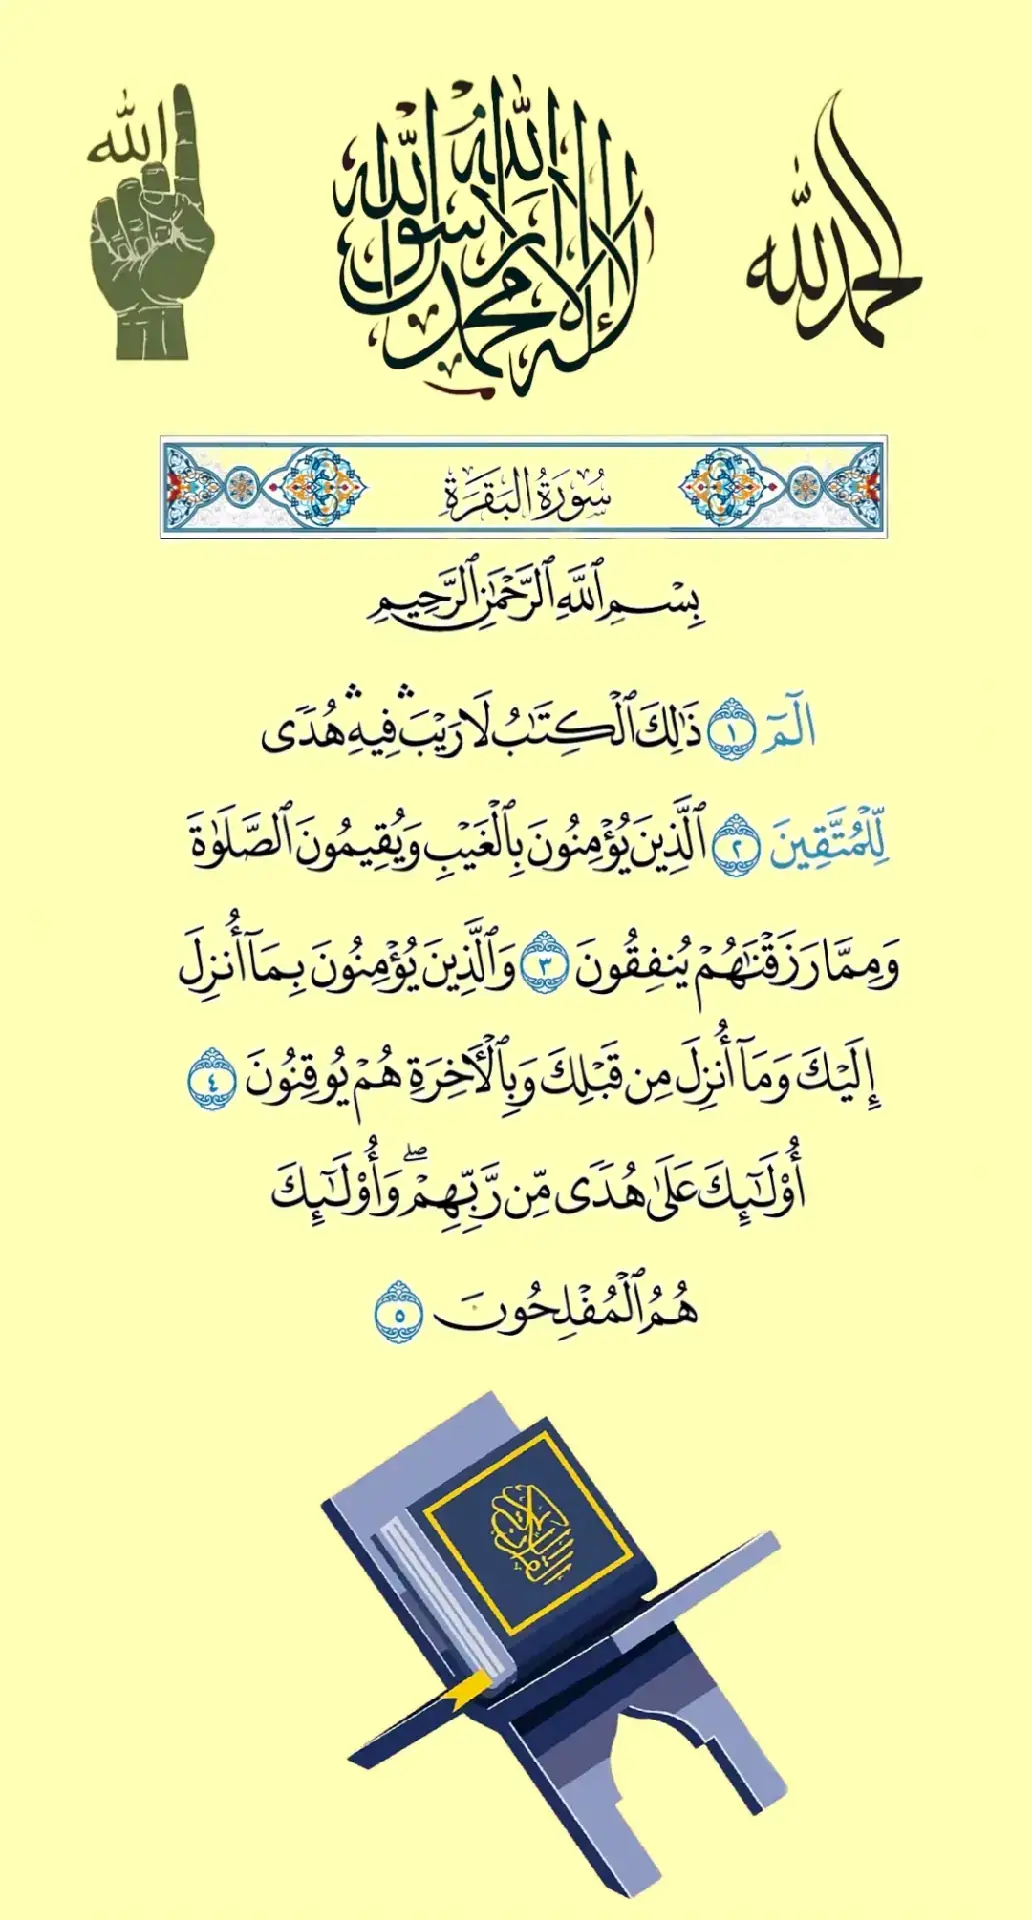 الله
لا إله إلا الله محمد رسول الله
الحمد لله
سُورَةُ البَقَرَةِ
بِسْمِ ٱللَّهِ ٱلرَّحْمَٰنِ ٱلرَّحِيمِ
الٓمٓ ١ ذَٰلِكَ ٱلْكِتَٰبُ لَا رَيْبَ ۛ فِيهِ ۛ هُدًى
لِّلْمُتَّقِينَ ٢ ٱلَّذِينَ يُؤْمِنُونَ بِٱلْغَيْبِ وَيُقِيمُونَ ٱلصَّلَوٰةَ
وَمِمَّا رَزَقْنَٰهُمْ يُنفِقُونَ ٣ وَٱلَّذِينَ يُؤْمِنُونَ بِمَآ أُنزِلَ
إِلَيْكَ وَمَآ أُنزِلَ مِن قَبْلِكَ وَبِٱلْأَخِرَةِ هُمْ يُوقِنُونَ ٤
أُو۟لَٰٓئِكَ عَلَىٰ هُدًى مِّن رَّبِّهِمْ ۖ وَأُو۟لَٰٓئِكَ
هُمُ ٱلْمُفْلِحُونَ ٥